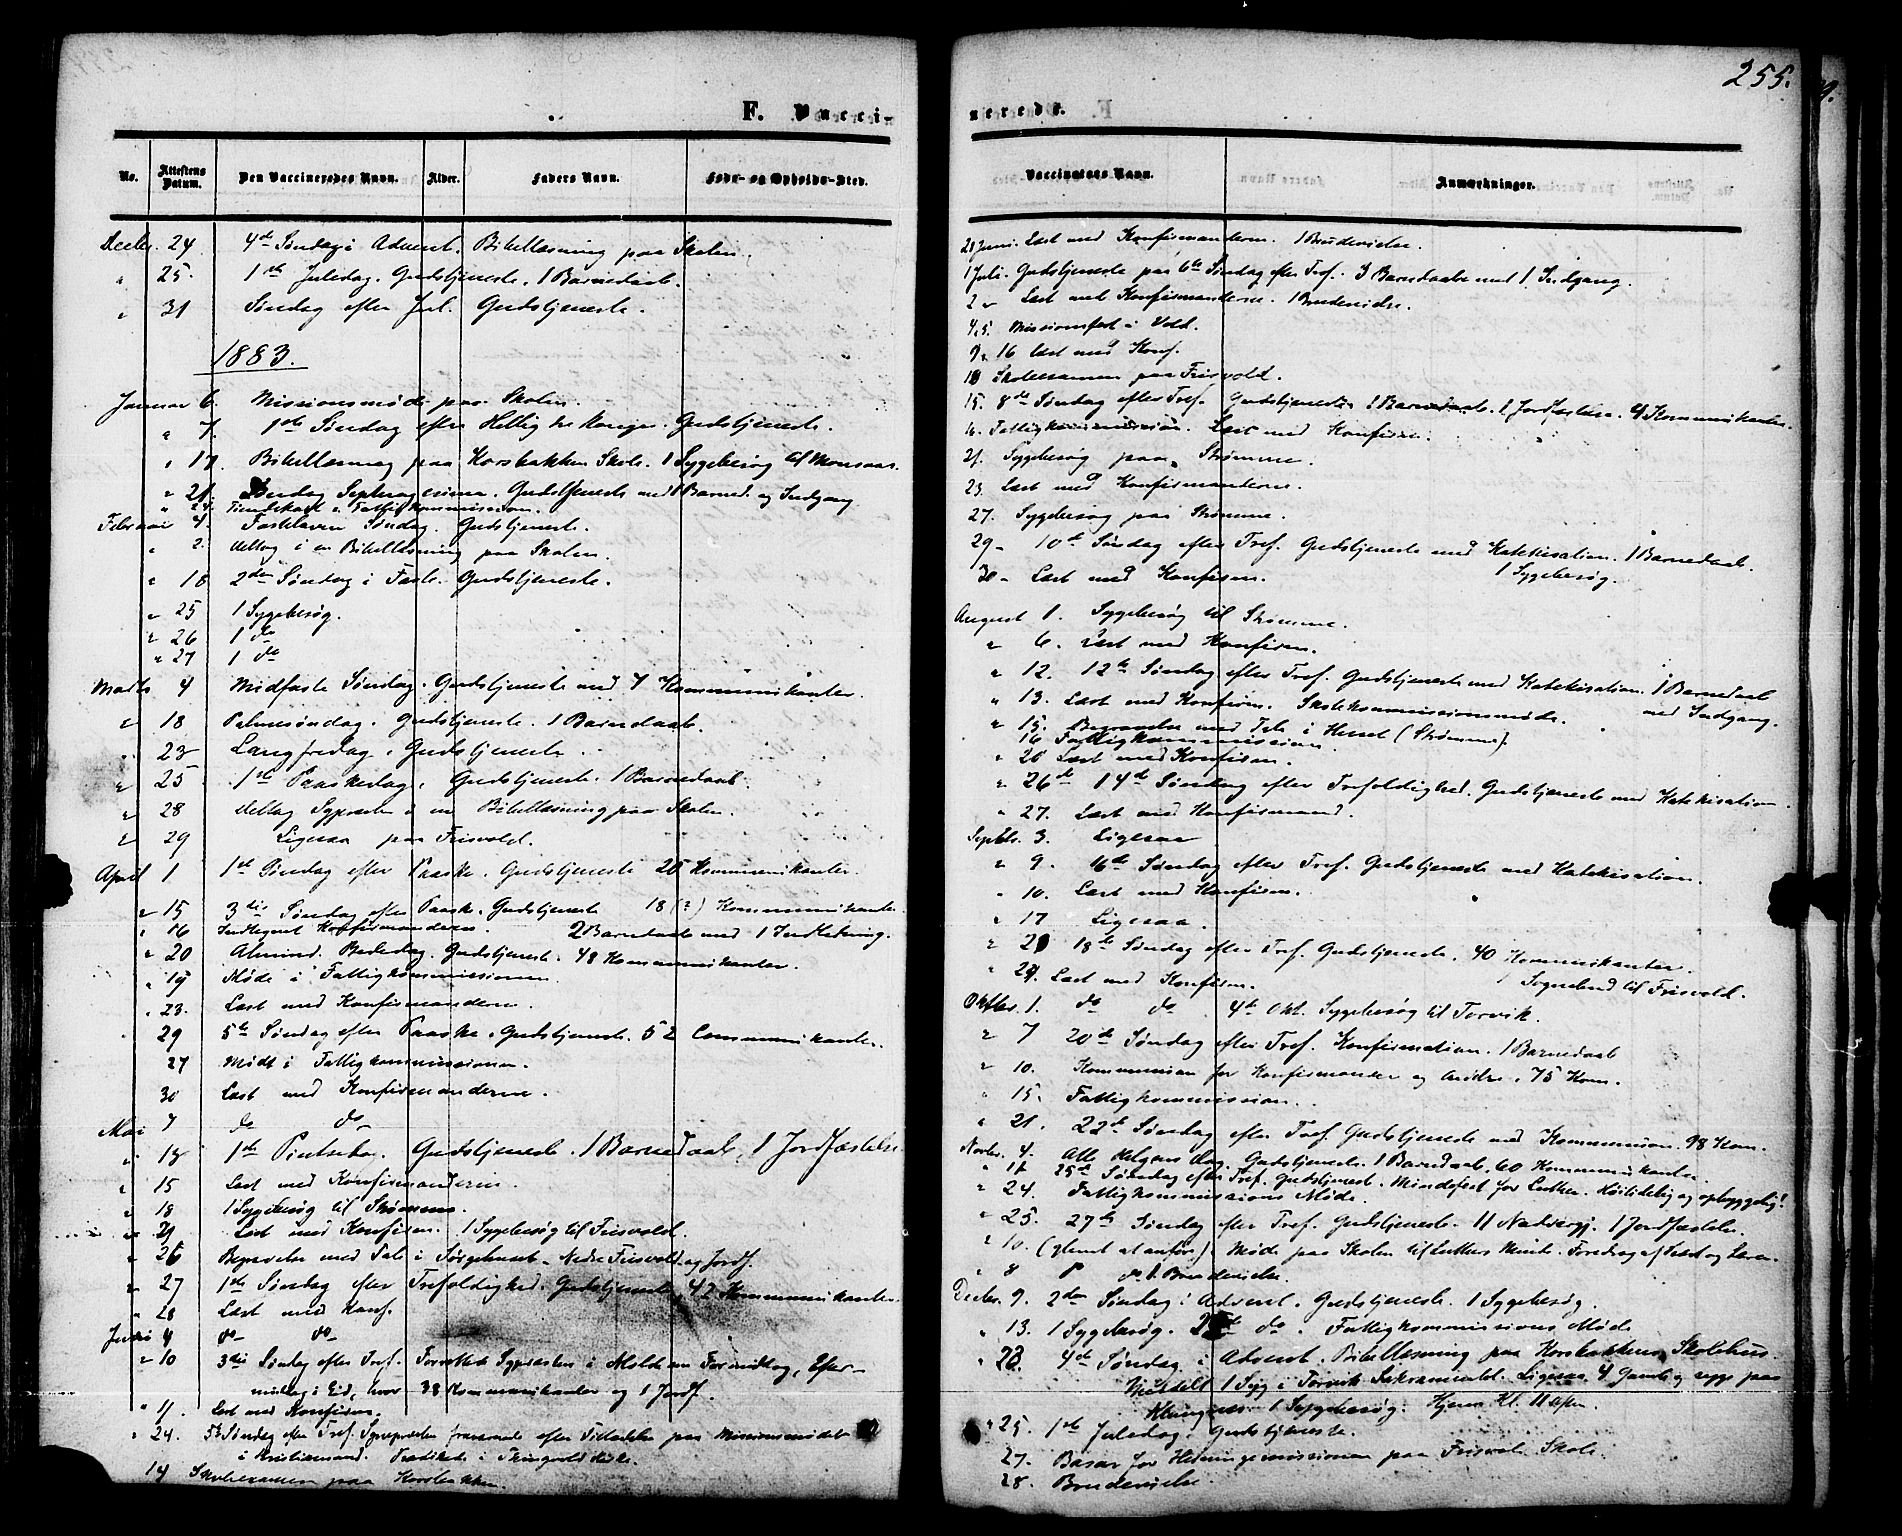 255.
F. Vacci-
No.
Attestens Datum.
Den Vaccineredes Navn.
Alder.
Faders Navn.
Føde- og Opholds-Sted.
Decbr. 24. 4de Søndag i Advent. Bibellæsning paa Skolen.
" 25. 1ste Juledag. Gudstjeneste. 1 Barnedaab.
" 31 Søndag efter Jul. Gudstjeneste.
1883.
Januar 6. Missionsmøde paa Skolen.
" 7. 1ste Søndag efter Hellig tre Konger. Gudstjeneste.
" 17. Bibellæsning paa Korsbakken Skole. 1 Sygebesøg til
" 21. Søndag Septuagesima. Gudstjeneste med 1 Barned. og Indgang
" 24. Fattigkommission.
Februar 4. Fastelavn Søndag. Gudstjeneste.
" 2. deltog i en Bibellæsning paa Skolen.
" 18 2den Søndag i Faste. Gudstjeneste.
" 25 1 Sygebesøg.
" 26 1 do
" 27 1 do
Marts 4 Midfaste Søndag. Gudstjeneste med 7 Kommunikanter.
" 18 Palmesøndag. Gudstjeneste. 1 Barnedaab.
" 23 Langfredag. Gudstjeneste.
" 25 1ste Paaskedag. Gudstjeneste. 1 Barnedaab.
" 28 deltog Sognepr. i en Bibellæsning paa Skolen.
" 29 Ligesaa paa Frisvold.
April 1 1ste Søndag efter Paaske. Gudstjeneste 20 Kommunikanter.
" 15 3die Søndag efter Paaske. Gudstjeneste 18 (?) Kommunikanter.
" 16 Indtegnet Konfirmanderne. 2 Barnedaab med 1 Indledning.
" 20 Almind. Bededag. Gudstjeneste. 48 Kommunikanter.
" 19 Møde i Fattigkommissionen
" 23. Læst med Konfirmanderne.
" 29 5te Søndag efter Paaske. Gudstjeneste. 52 Communikanter.
27 Mødt i Fattigkommissionen.
30 Læst med Konfirmanderne.
Mai 7 do do
" 13 1ste Pintsedag. Gudstjeneste. 1 Barnedaab, 1 Jordfæstelse
" 15 Læst med Konfirmanderne.
" 18 1 Sygebesøg til Strømme.
" 21 Læst med Konfirm. 1 Sygebesøg til Frisvold.
" 26 Begravelse med Tale i Sørgehuset Nedre Frisvold og Jordf.
" 27 1ste Søndag efter Trefoldighed. Gudstjeneste, 42 Kommunikanter.
" 28 Læst med Konf.
Juni 4 do do
" 10 3die Søndag efter Tref. Forrettede Sognepr. i Molde om Formiddag, Efter-
middag i Eid, hvor 38 Kommunikanter og 1 Jordf.
" 11. Læst med Konfirm.
" 24. 5te Søndag efter Tref. Sognepræsten fraværende efter Tilladelse paa Missionsmødet
i Kristiansund. Prædikede i Thingvold Kirke.
14 Skoleexamen paa Korsbakken.
nerede.
Vaccinators Navn.
Anmærkninger.
21 Juni. Læst med Konfirmanderne. 1 Brudevielse.
1 Juli. Gudstjeneste paa 6te Søndag efter Tref. 3 Barnedaabe med 1 Indgang.
2 " Læst med Konfirmanderne. 1 Brudevielse.
4, 5. Missionsfest i Vold.
9, 16 Læst med Konf.
10 Skoleexamen paa Frisvold.
15. 8de Søndag efter Tref. Gudstjeneste. 1 Barnedaab. 1 Jordfæstelse. 4 Kommunikanter.
16. Fattigkommission. Læst med Konfirm.
21. Sygebesøg paa Strømme.
23. Læst med Konfirmanderne.
27. Sygebesøg paa Strømme.
29 10de Søndag efter Tref. Gudstjeneste med Katekisation. 1 Barnedaab.
1 Sygebesøg.
30 Læst med Konfirm.
August 1. Sygebesøg til Strømme.
" 6. Læst med Konfirm.
" 12. 12te Søndag efter Tref. Gudstjeneste med Katekisation. 1 Barnedaab
med Indgang.
" 13. Læst med Konfirm. Skolekommissionsmøde.
" 15. Begravelse med Tale i Huset (Strømme).
16 Fattigkommission.
" 20 Læst med Konfirm.
" 26de 14de Søndag efter Trefoldighed. Gudstjeneste med Katekisation.
" 27. Læst med Konfirmand.
Septbr. 3. Ligesaa
" 9. 16de Søndag efter Tref. Gudstjeneste med Katekisation.
" 10. Læst med Konfirm.
" 17 Ligesaa.
" 23 18de Søndag efter Tref. Gudstjeneste. 40 Kommunikanter.
" 24. Læst med Konfirm. 1 Sognebud til Frisvold.
Oktbr. 1. do do 4de Okt. Sygebesøg til Torvik.
" 7 20de Søndag efter Tref. Konfirmation. 1 Barnedaab
" 10. Kommunion for Konfirmander og Andre. 75 Kom.
" 15. Fattigkommission.
" 21. 22de Søndag efter Tref. Gudstjeneste med Kommunion. 98 Kom.
Novbr. 4. Alle Helgens Dag. Gudstjeneste. 1 Barnedaab. 60 Kommunikanter.
" 11. 25de Søndag efter Tref. Gudstjeneste. Mindefest for Luther. Høitidelig og opbyggelig!
" 24. Fattigkommissions Møde.
" 25. 27de Søndag efter Tref. Gudstjeneste. 11 Nadvergj. 1 Jordfæstelse.
" 10. (glemt at anføre) Møde paa Skolen til Luthers Minde. Foredrag af
" 8 do. 1 Brudevielse.
Decbr. 9. 2den Søndag i Advent. Gudstjeneste. 1 Sygebesøg.
" 13. 1 Sygebesøg. do. Fattigkommissions Møde
" 23. 4de Søndag i Advent. Bibellæsning paa Korsbakkens Skolehus.
Meddelt 1 Syg i Torvik Sakramentet. Ligesaa 4 Gamle og syge paa
1 Sygebesøg. Hjem Kl. 11 Aften.
" 25. 1ste Juledag. Gudstjeneste.
27. Basar for Hedningemissionen paa Frisvold Skole.
28. Brudevielse